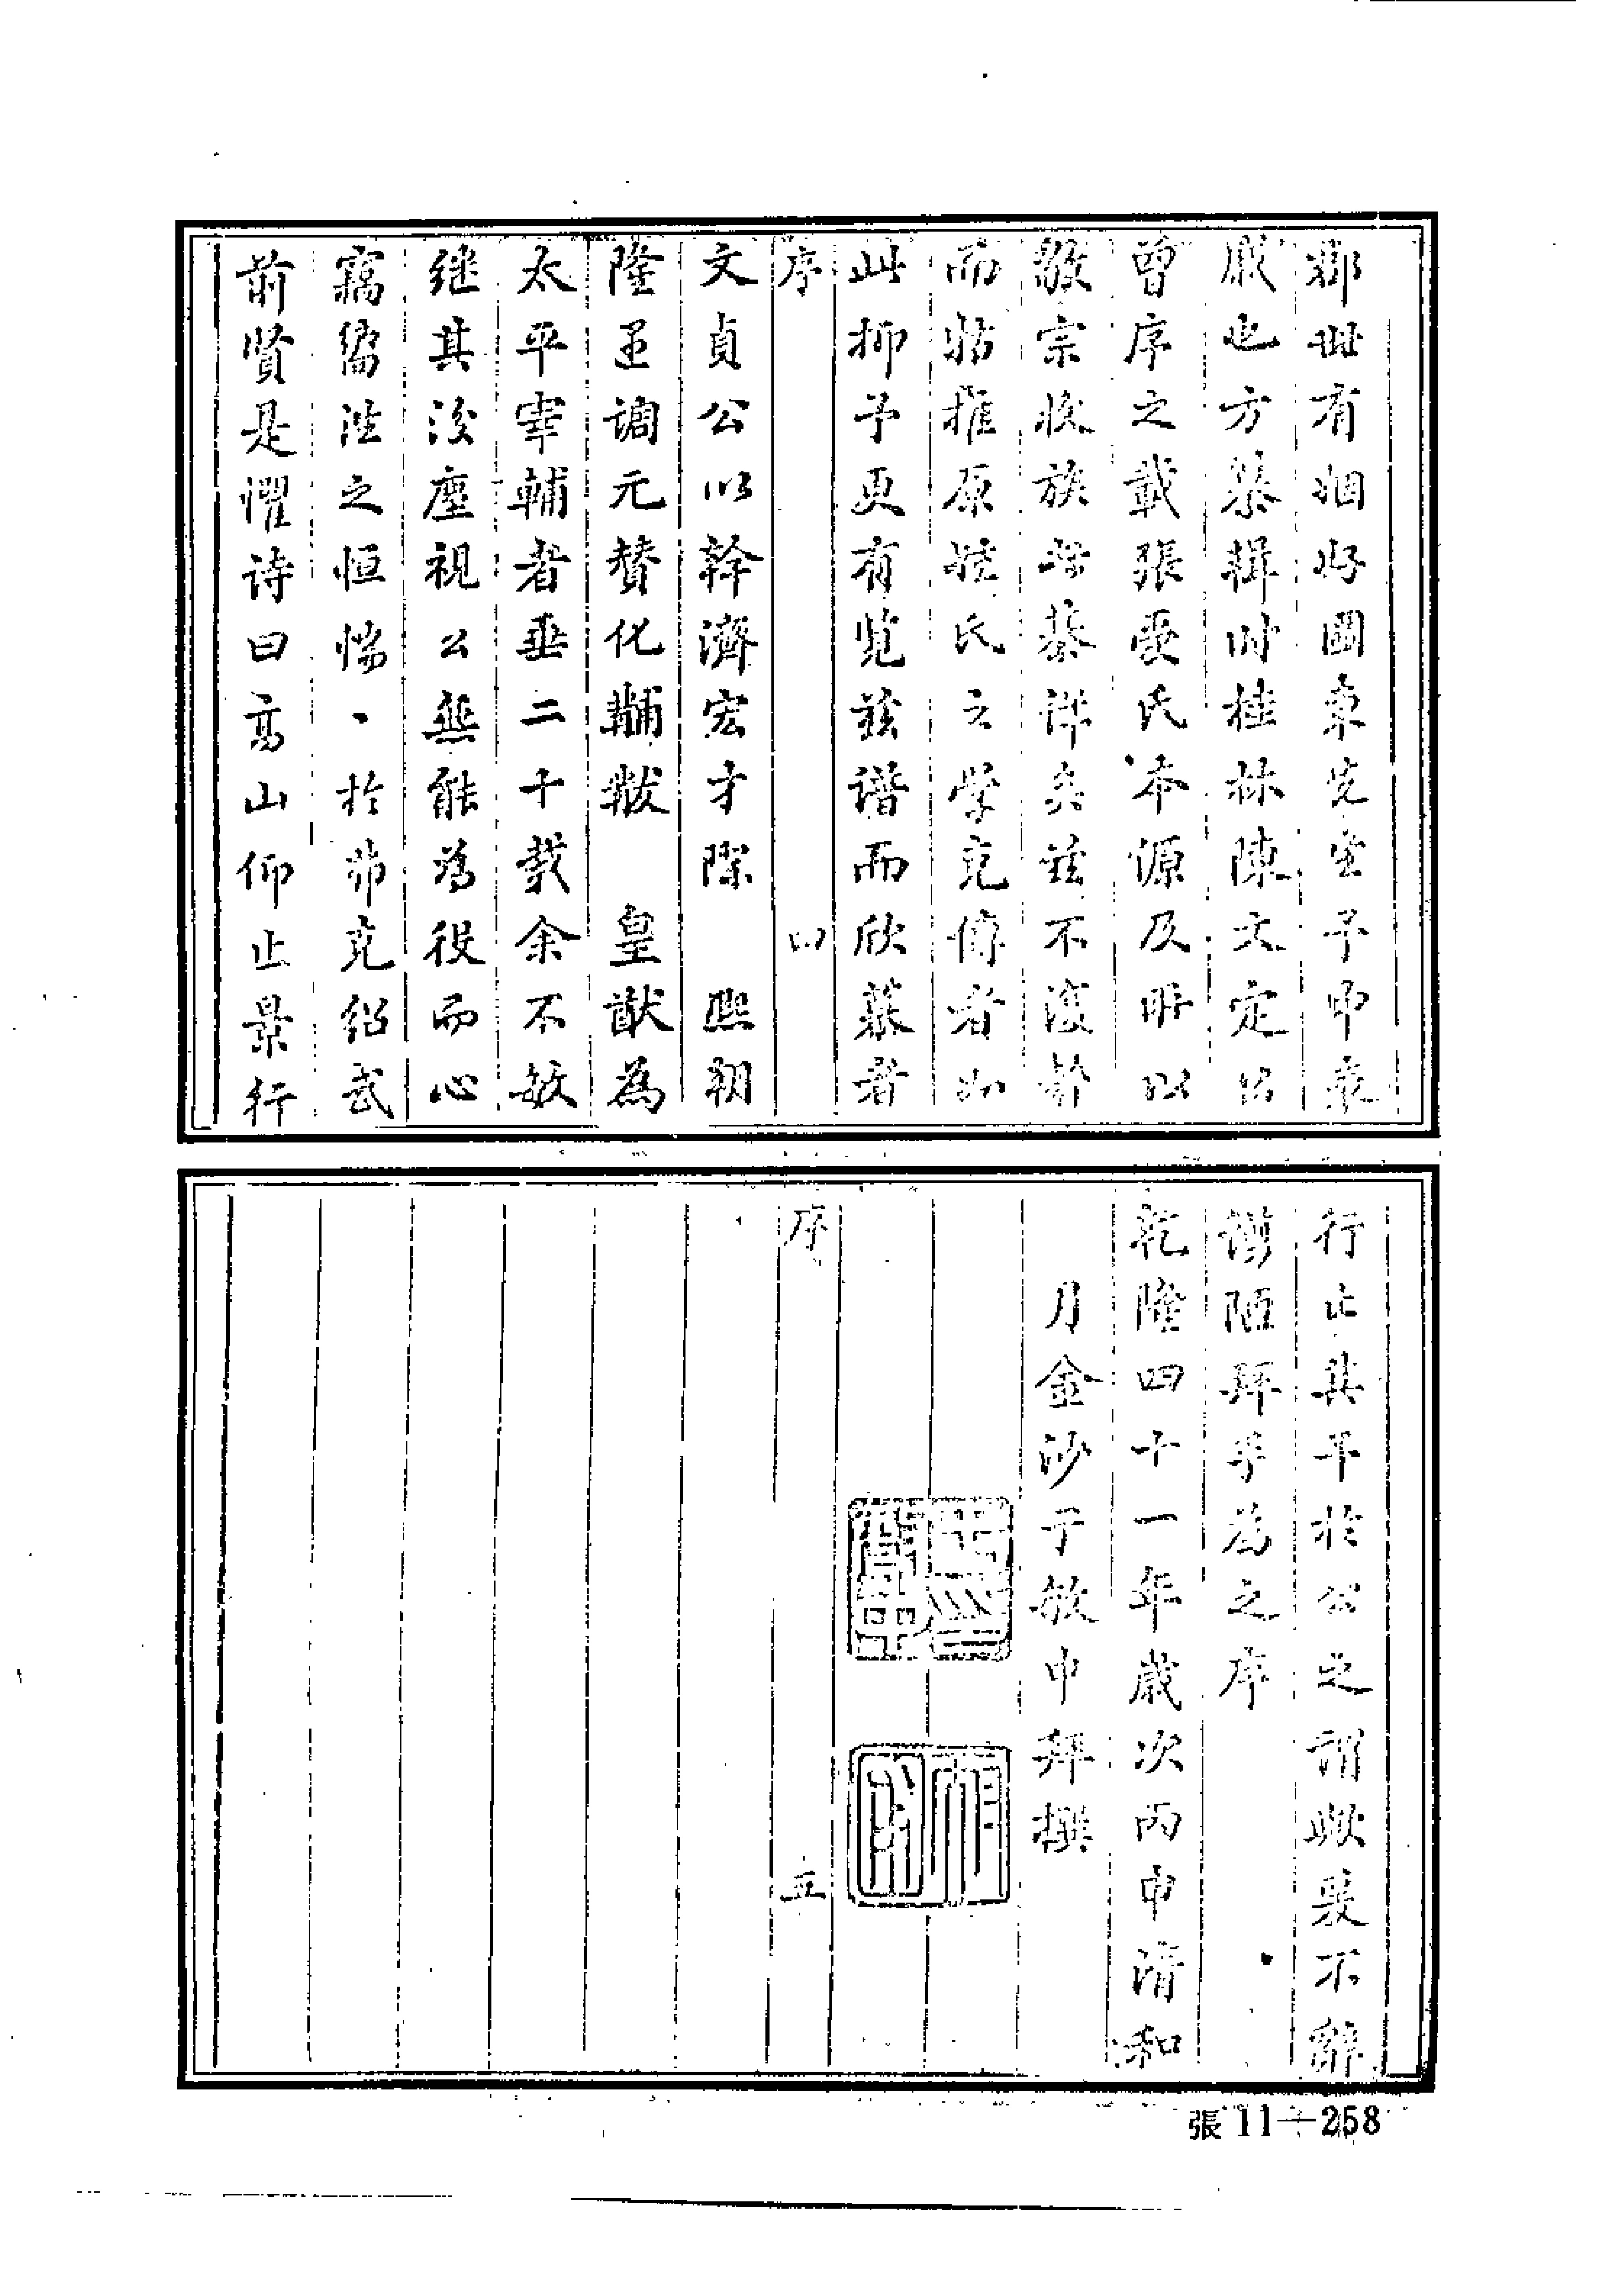 鄰世有姻好圃東先生予中表
戚也方纂輯时桂林陳文定公
曾序之載張受氏本源及所以
敬宗收族者綦详矣兹不復贅
而姑推原姓氏之学克傳者如
此抑予更有览兹谱而欣慕者
序 四
文貞公以幹濟宏才際 熙朝
隆王调元赞化黼黻 皇猷為
太平宰輔者垂二十載余不敏
继其後塵視公無能为役而心
竊嚮往之恒惴、於弗克绍武
前賢是懼诗曰高山仰止景行
行止其予於公之谓歟爰不辭
谫陋拜手为之序
乾隆四十一年歲次丙申清和
月金沙于敏中拜撰
序 五
張11—258